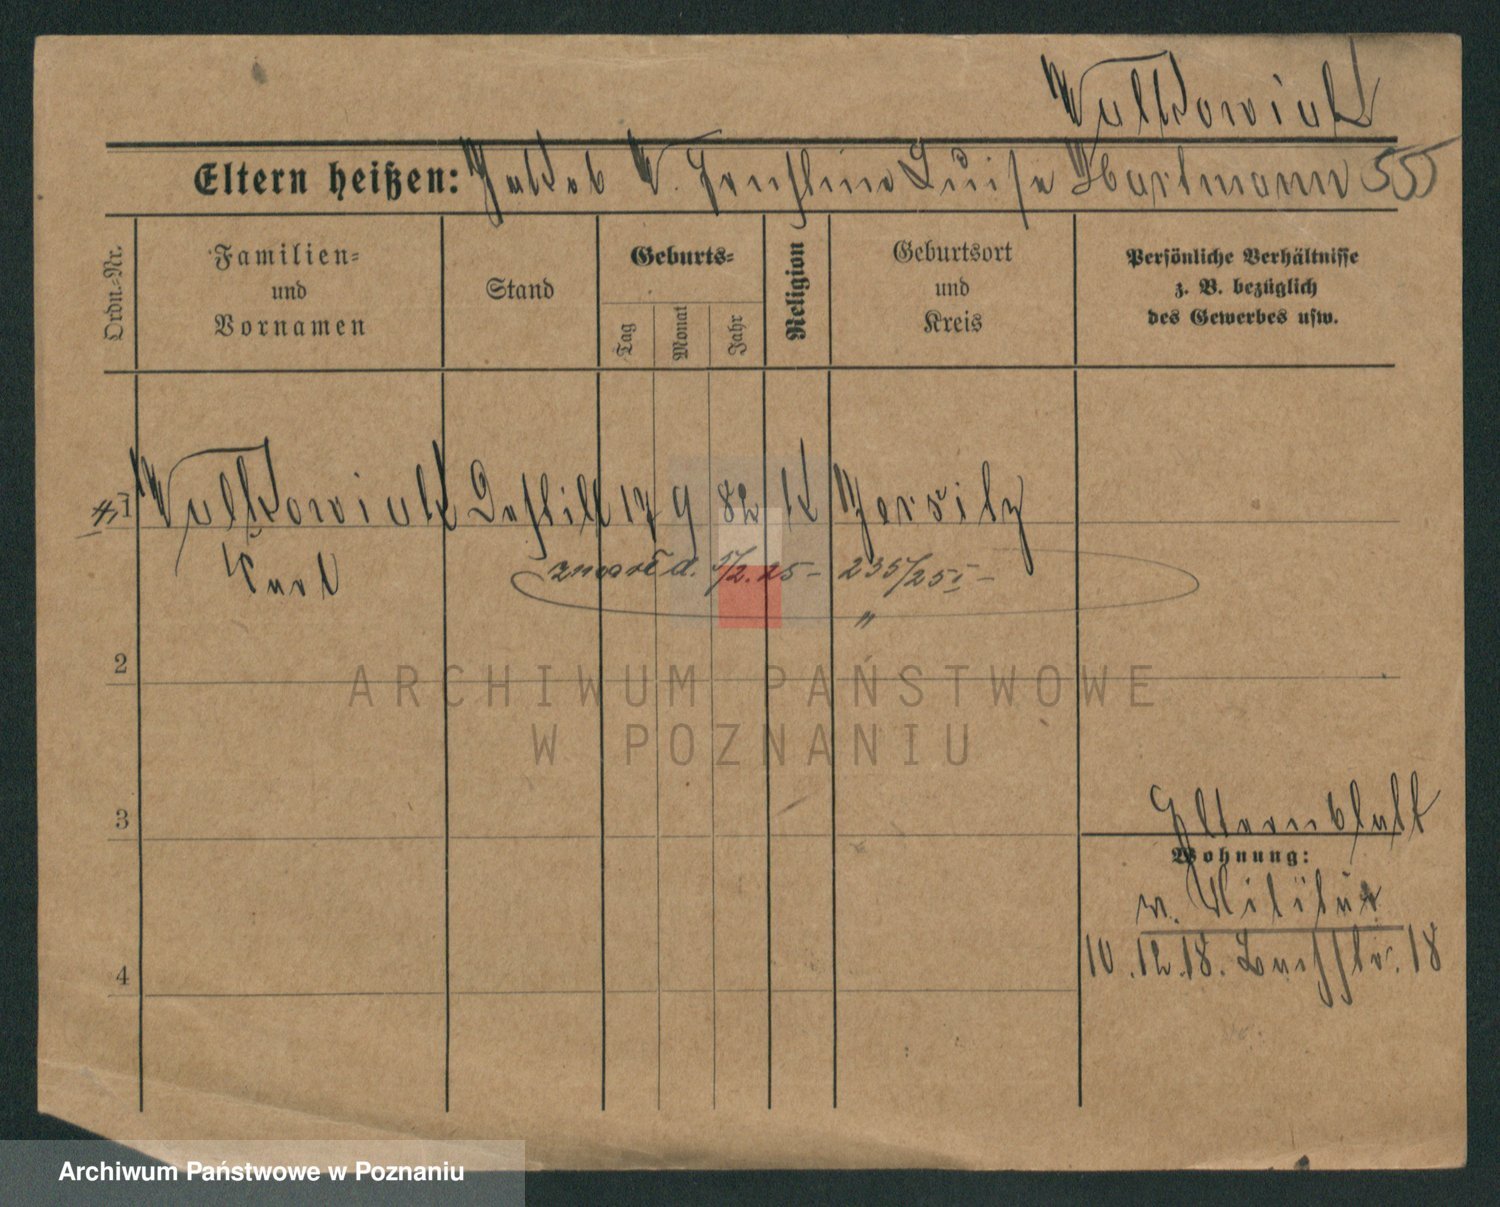 Walkowiak
Eltern heißen: Jakob W. Ernstine Luise Hartmann 555
Ordn.-Nr.
Familien-
und
Vornamen
Stand
Geburts-
Tag
Monat
Jahr
Religion
Geburtsort
und
Kreis
Persönliche Verhältnisse
z. B. bezüglich
des Gewerbes usw.
1 Walkowiak Destill 17 9 82 K Jersitz
Karl
zmarł d. 5/2.25 - 235/25 I -
"
2
3
4
Elternblatt
Wohnung:
v. Militär
10.12.18. 18
ARCHIWUM PAŃSTWOWE
W POZNANIU
Archiwum Państwowe w Poznaniu